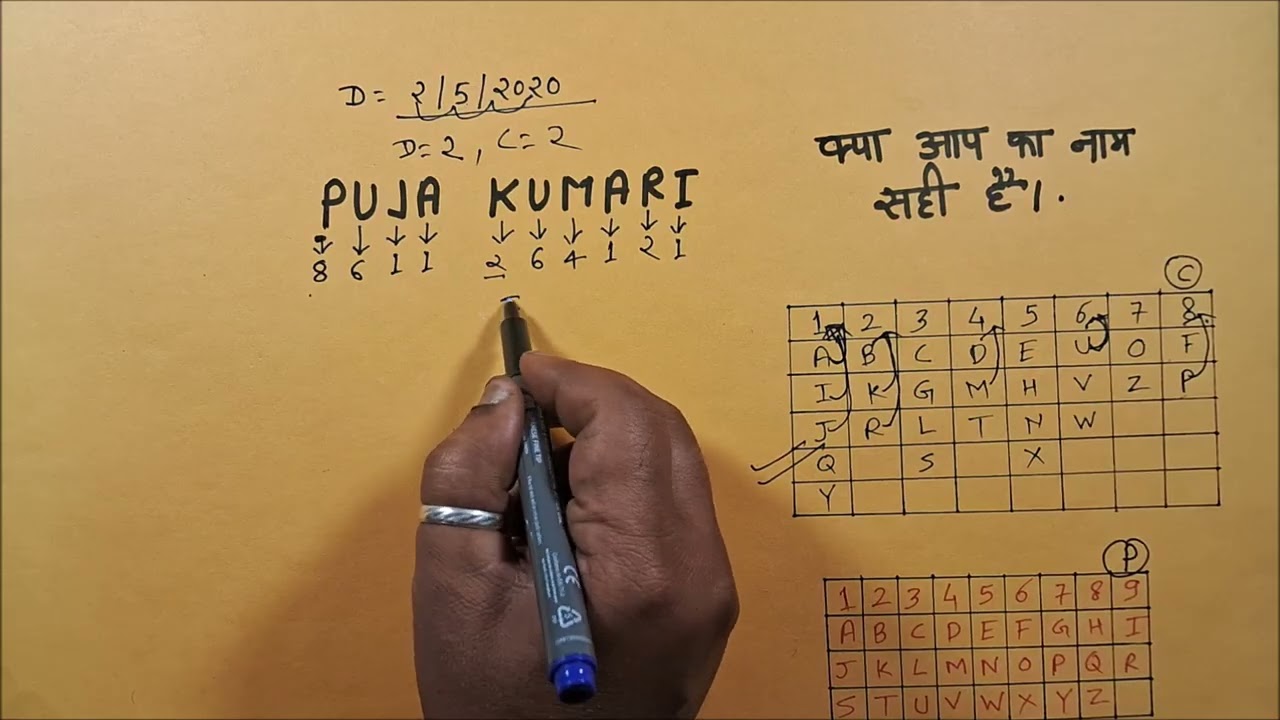 D = 2/5/2020
D=2, C=2
PUJA KUMARI
8 6 1 1 2 6 4 1 2 1
क्या आप का नाम
सही है??।.
C
1 2 3 4 5 6 7 8
A B C D E U O F
I K G M H V Z P
J R L T N W
Q S X
Y
P
1 2 3 4 5 6 7 8 9
A B C D E F G H I
J K L M N O P Q R
S T U V W X Y Z
CE